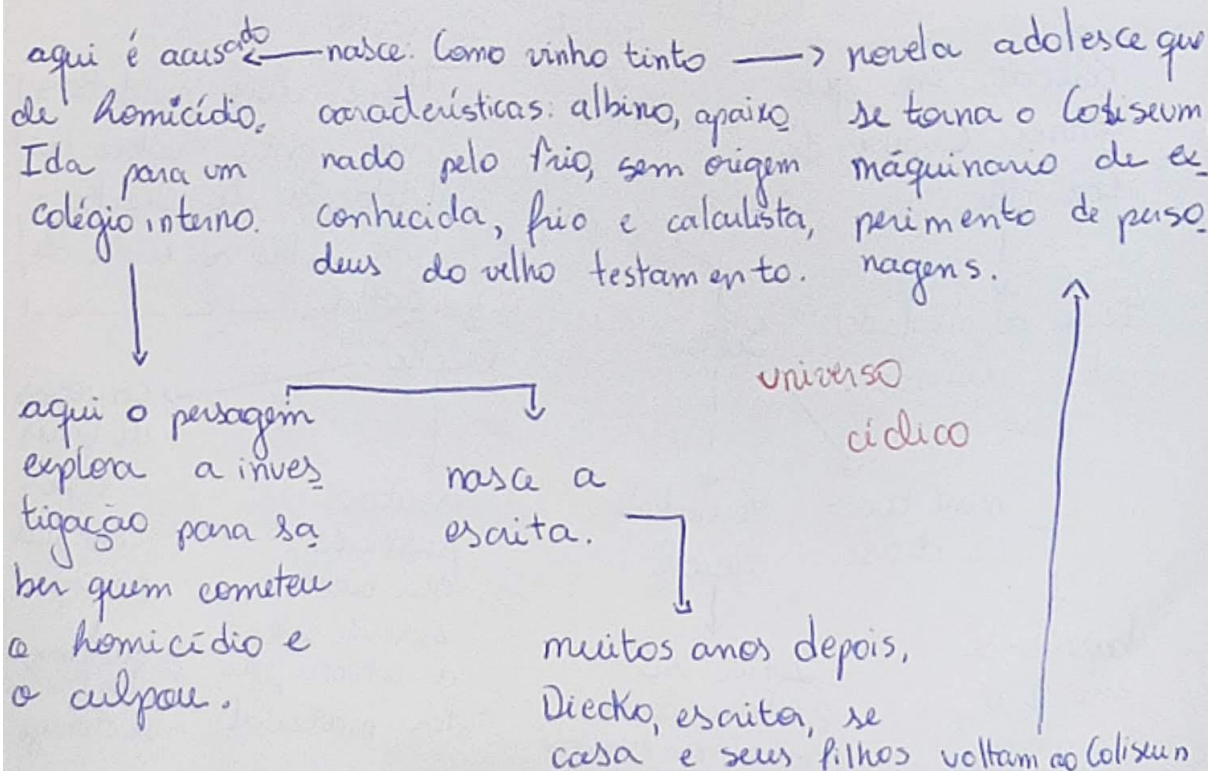 aqui é acusado
de homicídio.
Ida para um
colégio interno.
nasce: Como vinho tinto
características: albino, apaixo
nado pelo frio, sem origem
conhecida, frio e calculista,
deus do velho testamento.
novela adolesce que
se torna o Coliseum
máquinario de ex
perimento de perso
nagens.
aqui o persagem
explora a inves
tigação para sa
ber quem cometeu
o homicídio e
o culpou.
nasce a
escrita.
universo
cíclico
muitos anos depois,
Diecko, escritor, se
casa e seus filhos voltam ao Coliseun